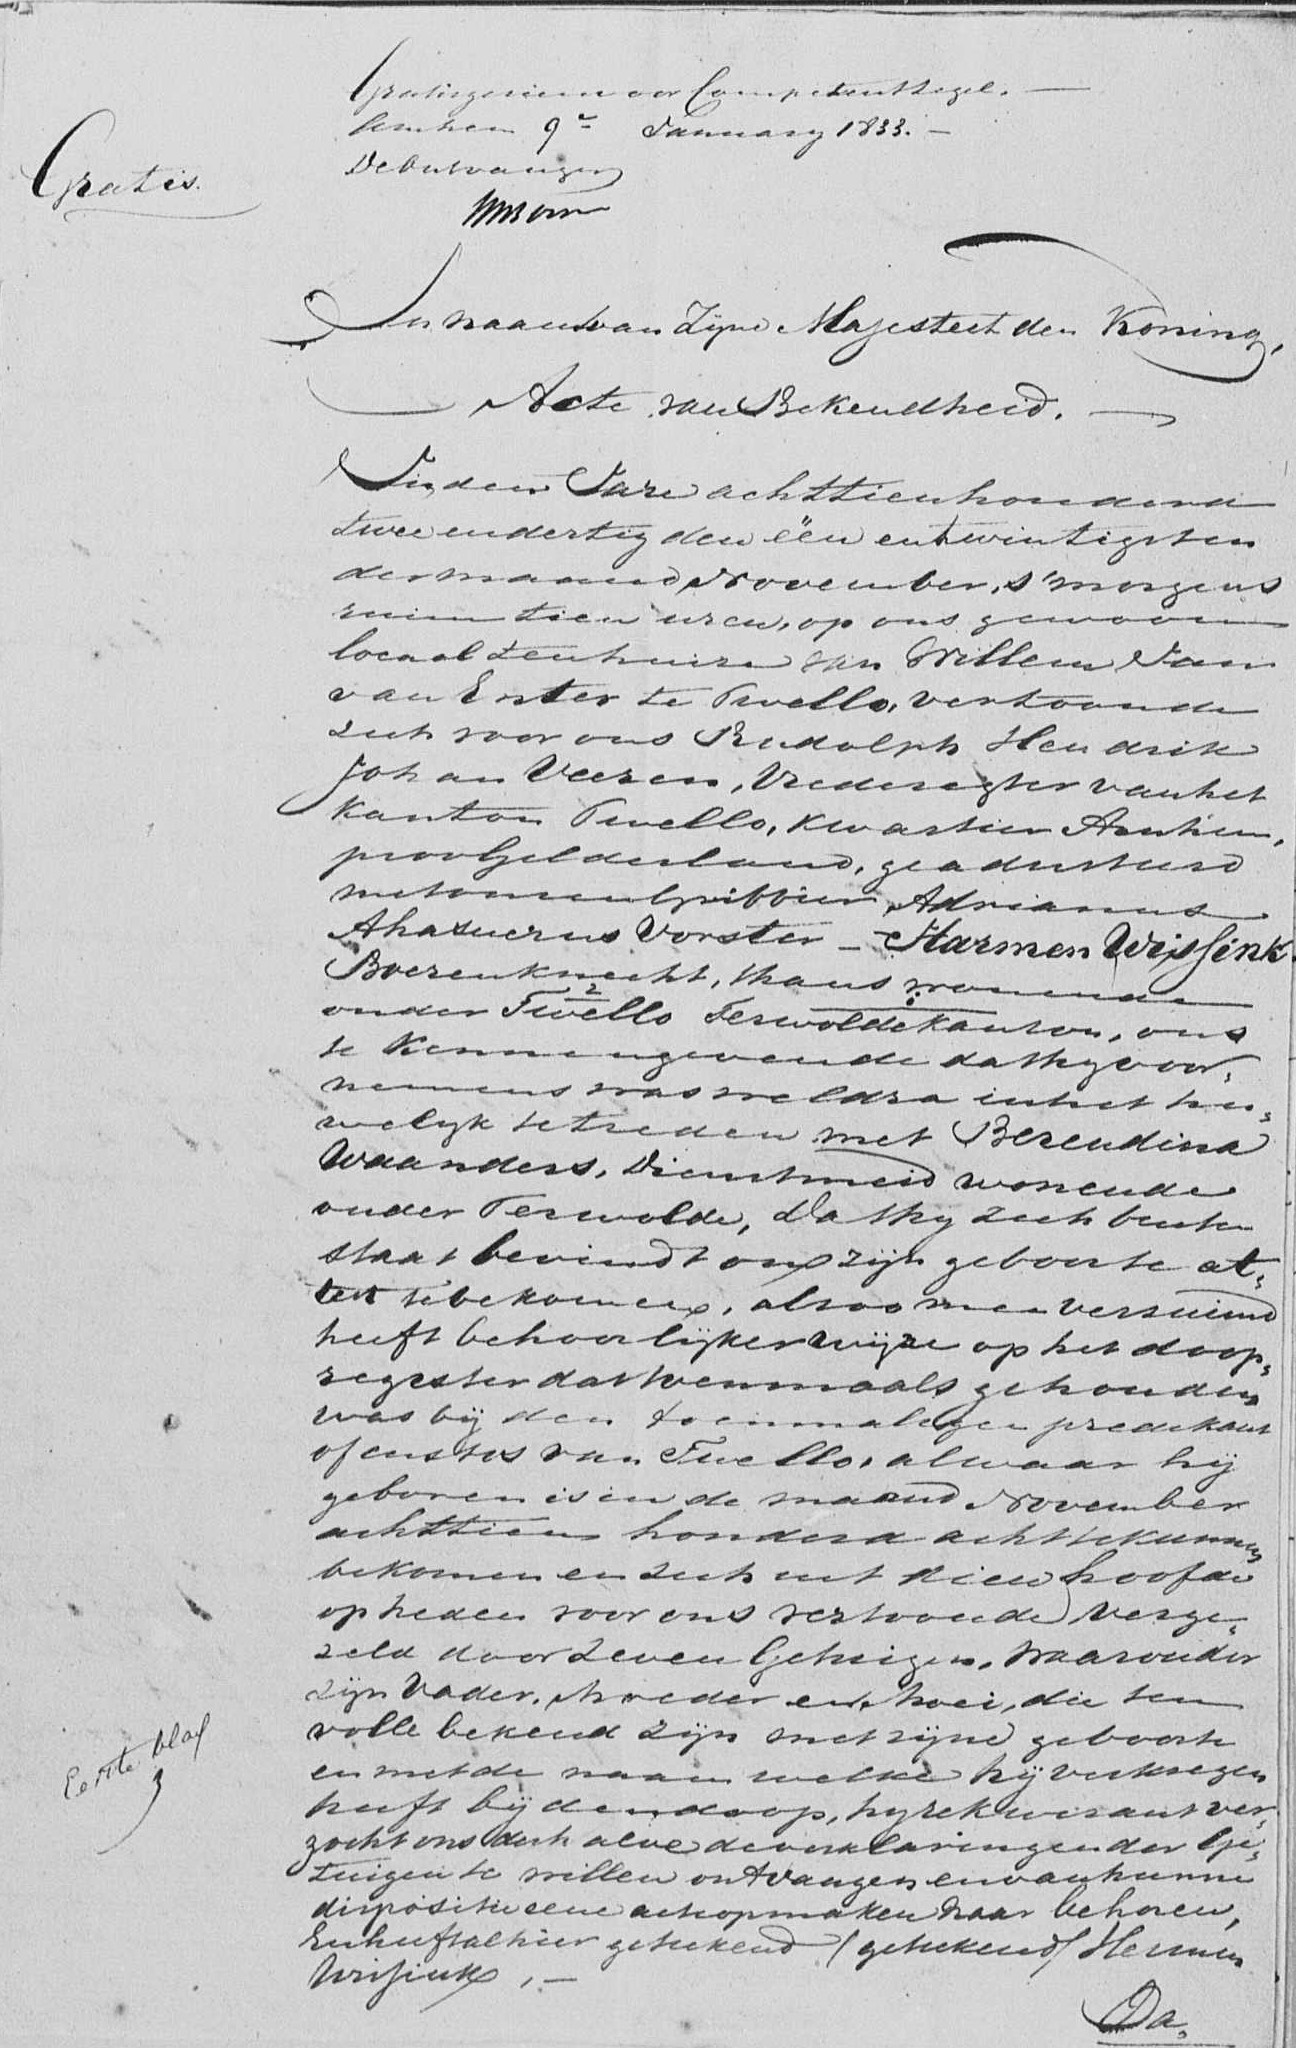 Gratis gezien voor Competent Zegel.
Arnhem 9e January 1833.
De Ontvanger
Gratis.
In naam van Zyne Majesteit den Koning,
Acte van Bekendheid.
In den Jare achttienhonderd
twee endertig den één entwintigsten
der maand November, s'morgens
ruim tien uren, op ons gewoon
locaal ten huize van Willem Jan
van Enter te Twello, vertoonde
zich voor ons Rudolph Hendrik
Johan Veeren, Vrederegter van het
kanton Twello, kwartier Arnhem,
prov Gelderland, geadsisteerd
met onzen Griffier Adrianus
Ahasuerus Vorster - Harmen Wissink
Boerenknecht, thans wonende
onder Twello Terwolde kanton, ons
te kennen gevende dat hy voor,
nemens was weldra in het hu,
welyk te treden met Berendina
Waanders, Dienstmeid wonende
onder Terwolde, Dat hy zich buiten
staat bevindt om zijn geboorte at,
test te bekomen, alzoo men versuimd
heeft behoorlijker wijze op het doop,
register dat toenmaals gehouden
was bij den toenmaligen predikant
of custos van Twello, alwaar hij
geboren is in de maand November
achttien honderd acht te kunnen
bekomen en zich uit dien hoofde
op heden voor ons vertoonde verge,
zeld door zeven Getuigen, waaronder
zijn Vader, Moeder en, die ten
volle bekend zijn met zijne geboorte
en met de naam welke hij verkregen
heeft bij den doop, hy rekwirant ver,
zocht ons derhalve de verklaringen der Ge,
tuigen te willen ontvangen en van hunne
dispositie eene acte op maken naar behoren,
En heeft alhier getekend (getekend) Hermen
Wissink, -
Eerste blad
Da,